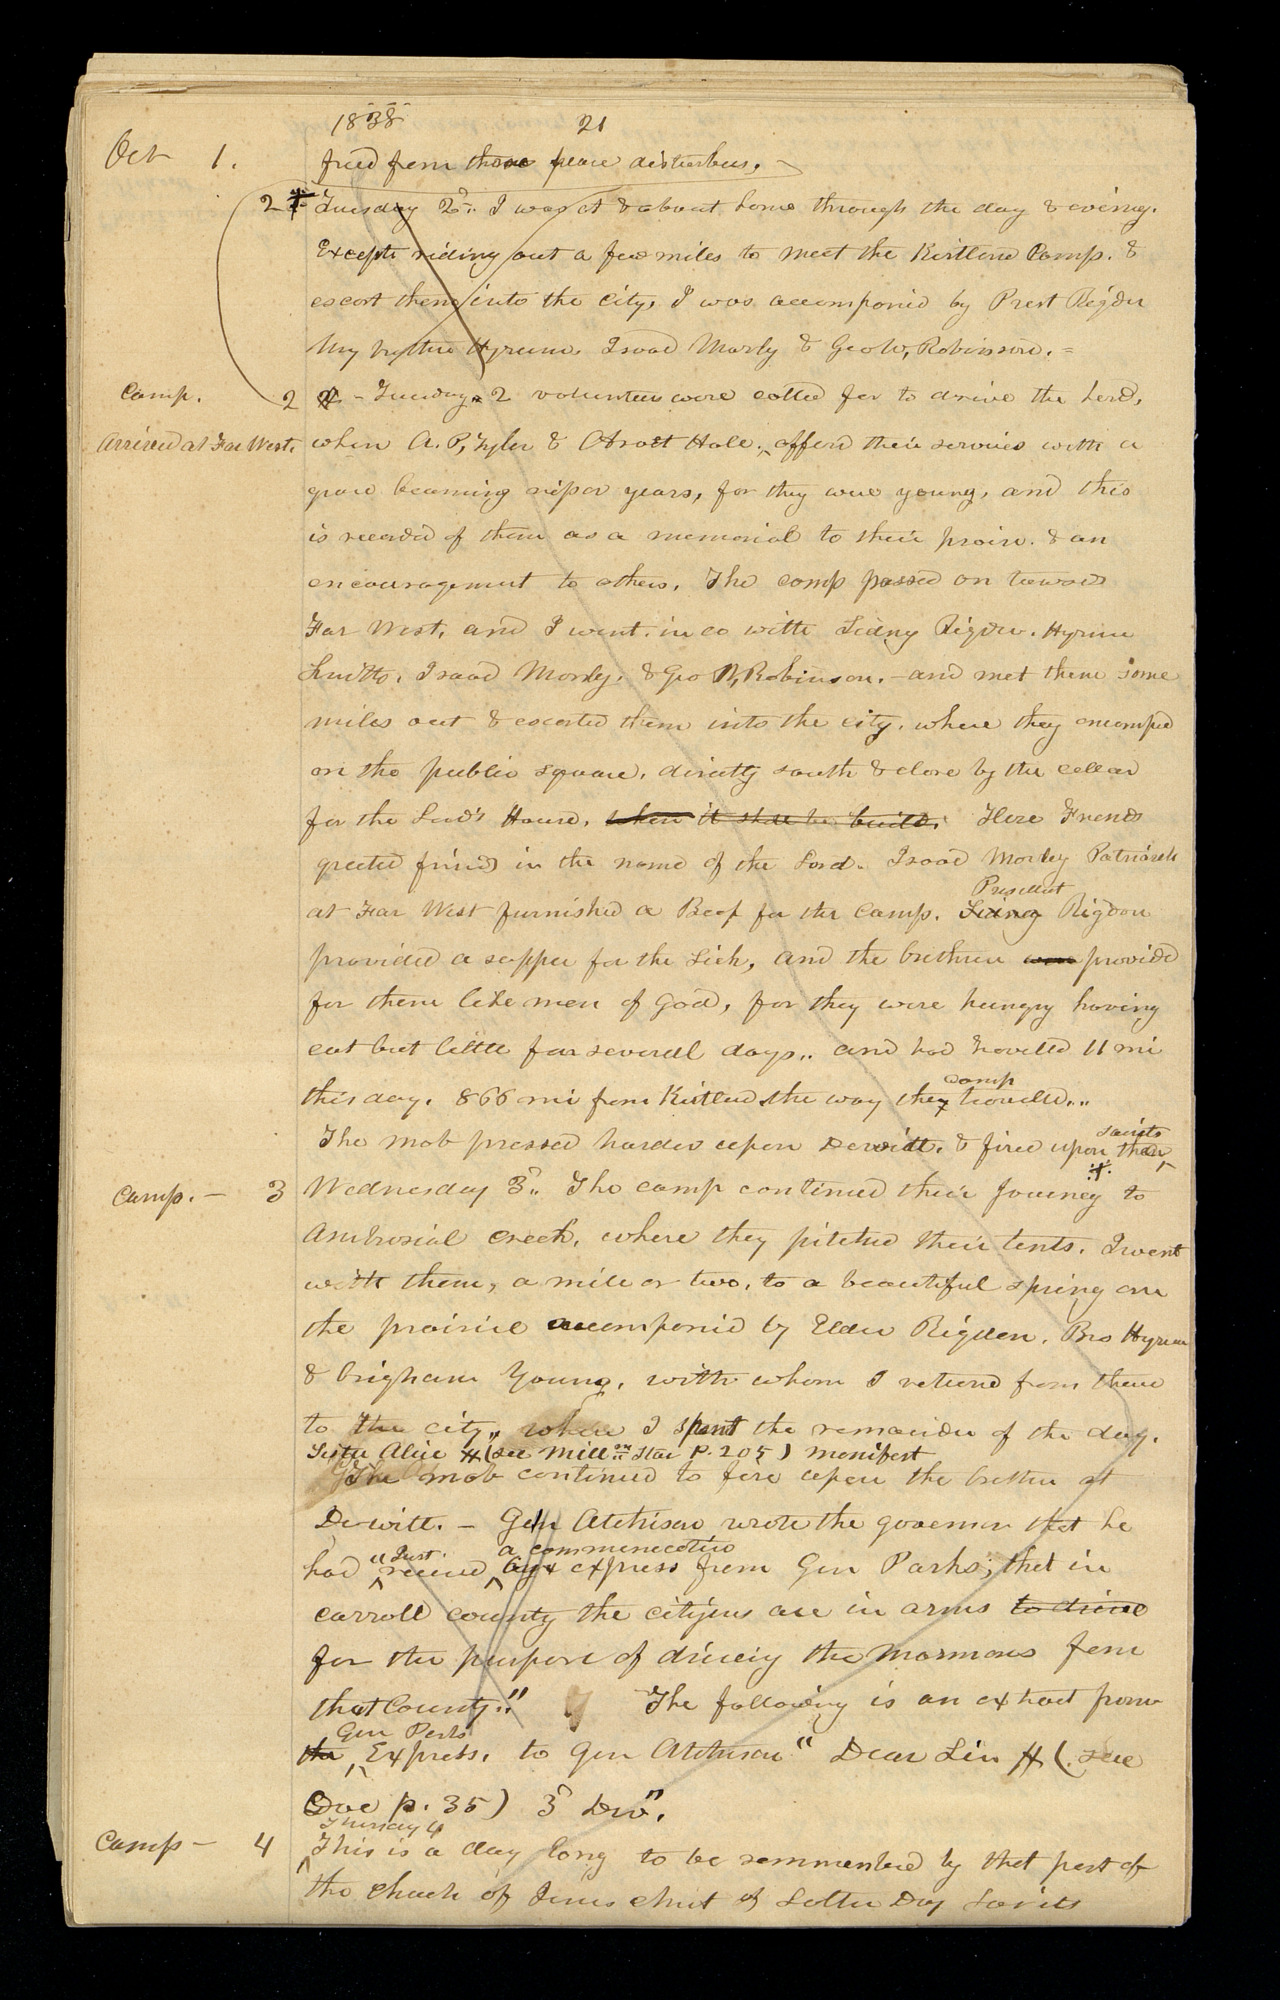 1838 21
Oct 1. freed from those peace disturbers.
2 Tuesday 2d. I was at & about home through the day & evening.
Except riding out a few miles to meet the Kirtland Camp. &
escort them into the city, I was accompanied by Prest Rigdon
My brother Hyrum. Isaac Morly & Geo W, Robinson. =
Camp. 2 2 - Tuesday 2 volunteers were called for to drive the herd,
Arrived at Far West. when A. P, Tyler & Hale. offerd their services with a
grace becoming riper years, for they were young, and this
is recorded of them as a memorial to their praise. & an
encouragement to others. The camp passed on towards
Far West, and I went. in co with Sidny Rigdon. Hyrum
Smith. Isaac Morley. & Geo W, Robinson. - and met them some
miles out & escorted them into the city. where they encamped
on the public square. directly south & close by the cellar
for the Lord's House. when it shall be built. Here Friends
greeted friends in the name of the Lord. Isaac Morley Patriarch
President
at Far West furnished a Beef for the Camp. Sidney Rigdon
provided a supper for the Sick, and the brethren were provided
for them like men of God, for they were hungry having
eat but little for several days.. and had travelled 11 mi
camp
this day. 866 mi from Kirtland the way they travelled...
saints
The mob pressed harder upon Dewitt. & fired upon them,
Camp. - 3 Wednesday 3d.. The camp continued their Journey to
Ambrosial creek, where they pitched their tents. I went
with them, a mile or two, to a beautiful spring on
the prairie accompanied by Elder Rigdon. Bro Hyrum
& Brigham Young, with whom I returned from thence
to the city,, where I spent the remainder of the day.
Sister Alice # (see Milln Star P. 205) manifest
The mob continued to fire upon the brethren at
De-witt. - Gen Atchison wrote the governor that he
Just a communication
had "recived by express from Gen Parks; that in
carroll county the citizens are in arms to drive
for the purpose of driving the mormons from
that County." The following is an extract from
Gen Parks
the Express. to Gen Atchison "Dear Sir # (. see
Doc p. 35) 3d Div".
Thursday 4
Camp - 4 This is a day long to be remmembered by that part of
the church of Jesus christ of Latter Day Saints